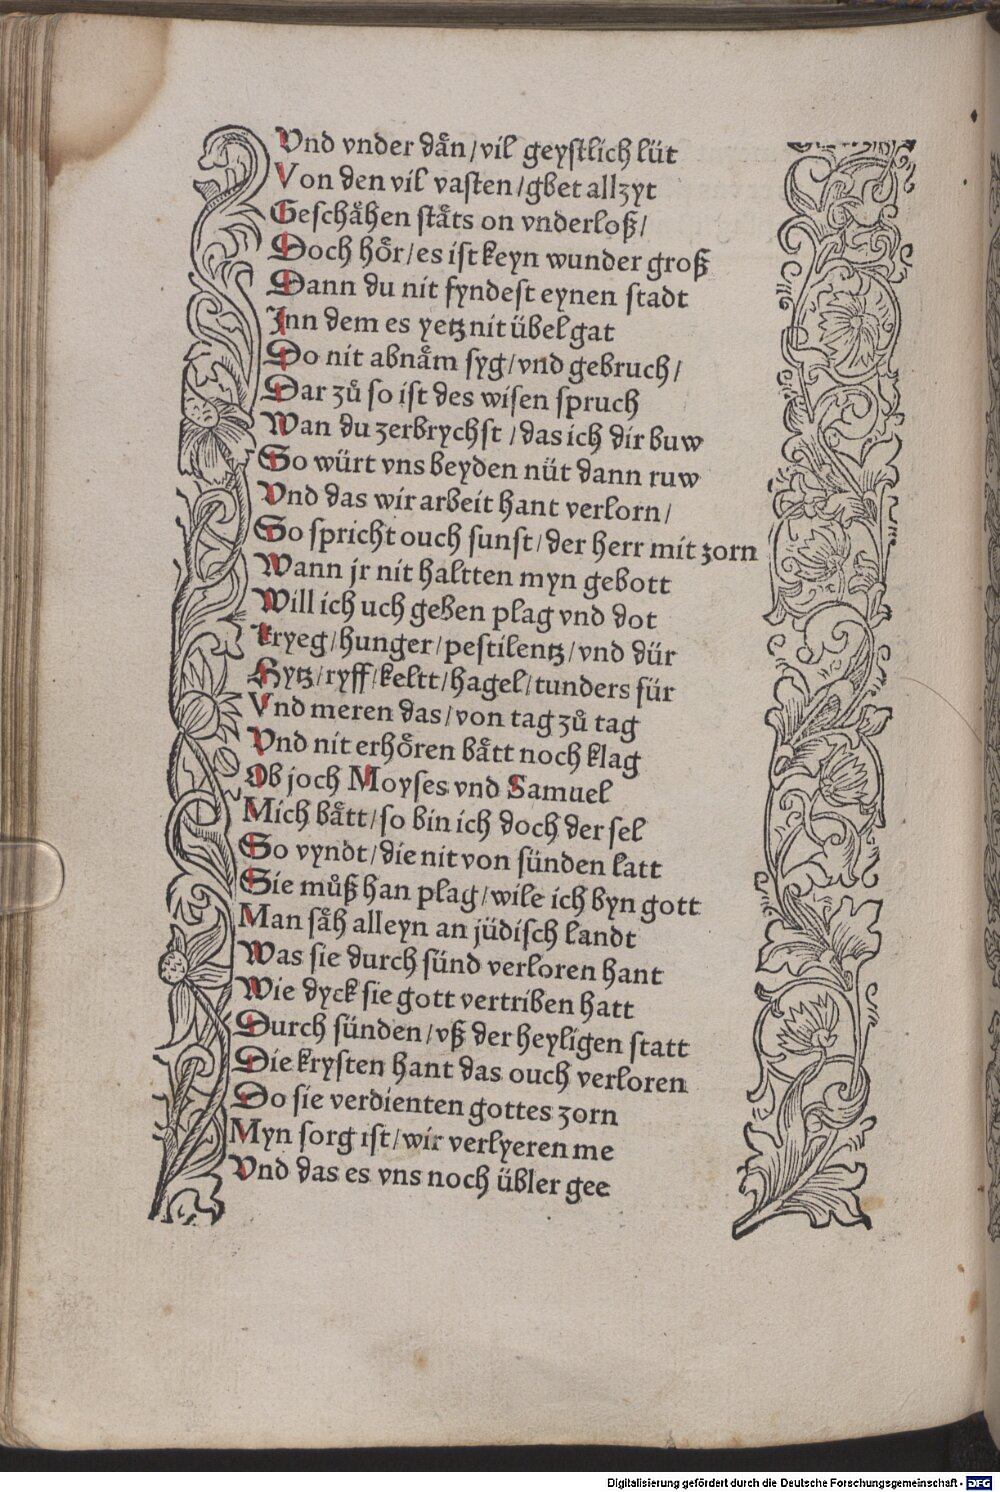 Vnd vnder dåͤn/vil geystlich lüt
Von den vil vasten/gbet allzyt
Geschaͤhen staͤts on vnderloß/
Doch hoͤr/es ist keyn wunder groß
Dann du nit fyndest eynen stadt
Jnn dem es yetz nit übel gat
Do nit abnaͤm syg/vnd gebruch/
Dar zuͦ so ist des wisen spruch
Wan du zerbrychst/das ich dir buw
So würt vns beyden nüt dann ruw
Vnd das wir arbeit hant verlorn/
So spricht ouch sunst/der herr mit zorn
Wann jr nit haltten myn gebott
Will ich uch geben plag vnd dot
kryeg/hunger/pestilentz/vnd dür
Hytz/ryff/keltt/hagel/tunders für
Vnd meren das/von tag zuͦ tag
Vnd nit erhoͤren baͤtt noch klag
Ob joch Moyses vnd Samuel
Mich baͤtt/so bin ich doch der sel
So vyndt/die nit von sünden latt
Sie muͦß han plag/wile ich byn gott
Man saͤh alleyn an jüdisch landt
Was sie durch sünd verloren hant
Wie dyck sie gott vertriben hatt
Durch sünden/vß der heyligen statt
Die krysten hant das ouch verloren
Do sie verdienten gottes zorn
Myn sorg ist/wir verlyeren me
Vnd das es vns noch übler gee
Digitalisierung gefördert durch die Deutsche Forschungsgemeinschaft - DFG